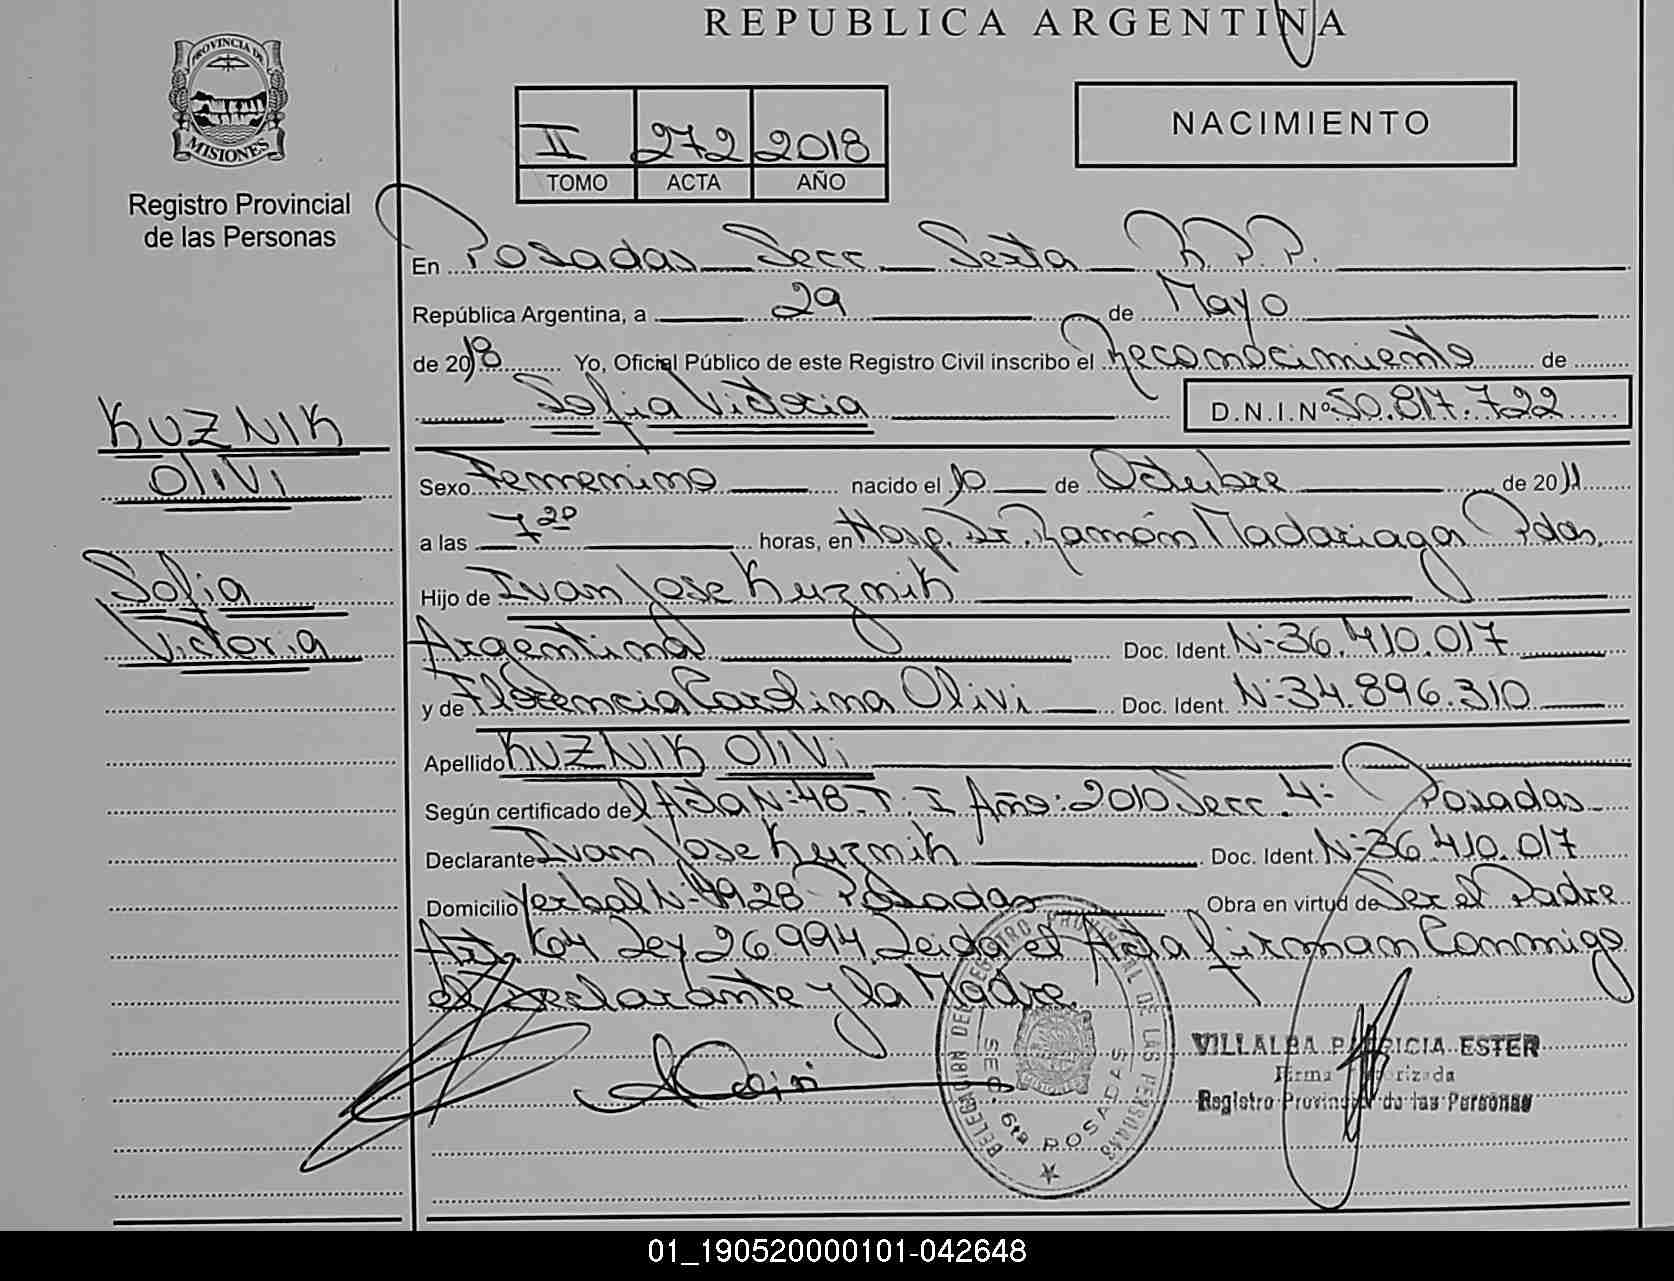 REPUBLICA ARGENTINA
PROVINCIA DE
MISIONES
Registro Provincial
de las Personas
II 272 2018
TOMO ACTA AÑO
NACIMIENTO
En Posadas Secc. Sexta R.P.P.
República Argentina, a 29 de Mayo
de 2018 Yo, Oficial Público de este Registro Civil inscribo el Reconocimiento de
Sofia Victoria D.N.I.Nº 50.817.722
KUZNIK
OLIVI
Sofia
Victoria
Sexo Femenino nacido el 10 de Octubre de 2011
a las 7 20 horas, en Hosp. Dr. Ramón Madariaga Pdas.
Hijo de Ivan Jose Kuznik
Argentina Doc. Ident. Nº 36.410.017
y de Florencia Carolina Olivi Doc. Ident. Nº 34.896.310
Apellido KUZNIK OLIVI
Según certificado del Acta Nº 48 T: I Año: 2010 Secc. 4º Posadas
Declarante Ivan Jose Kuznik Doc. Ident. Nº 36.410.017
Domicilio Yerbal Nº 4928 Posadas Obra en virtud de Ser el Padre
Art. 64 Ley 26.994 Leida el Acta firman Conmigo
el Declarante y la Madre.
DELEGACION DEL REGISTRO PROVINCIAL DE LAS PERSONAS
SEC. 6ta POSADAS
VILLALBA PATRICIA ESTER
Firma Autorizada
Registro Provincial de las Personas
01_190520000101-042648